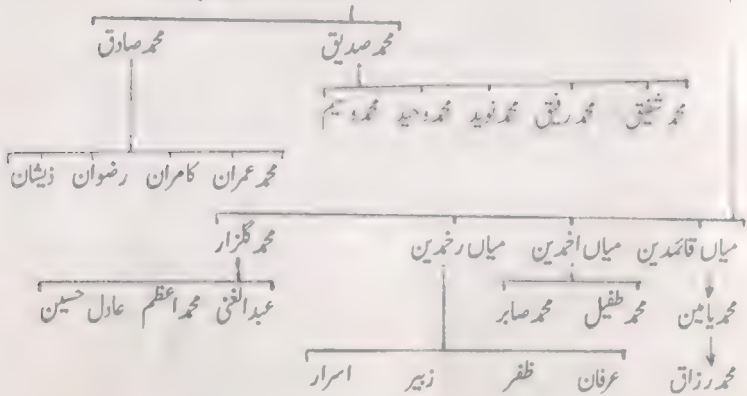 محمد صدیق محمد صادق
محمد شفیق محمد رفیق محمد نوید محمد وحید محمد وسیم
محمد عمران کامران رضوان ذیشان
میاں قائمدین میاں اخمدین میاں رخمدین محمد گلزار
محمد یامین محمد طفیل محمد صابر عبدالغنی محمد اعظم عادل حسین
محمد رزاق عرفان ظفر زبیر اسرار